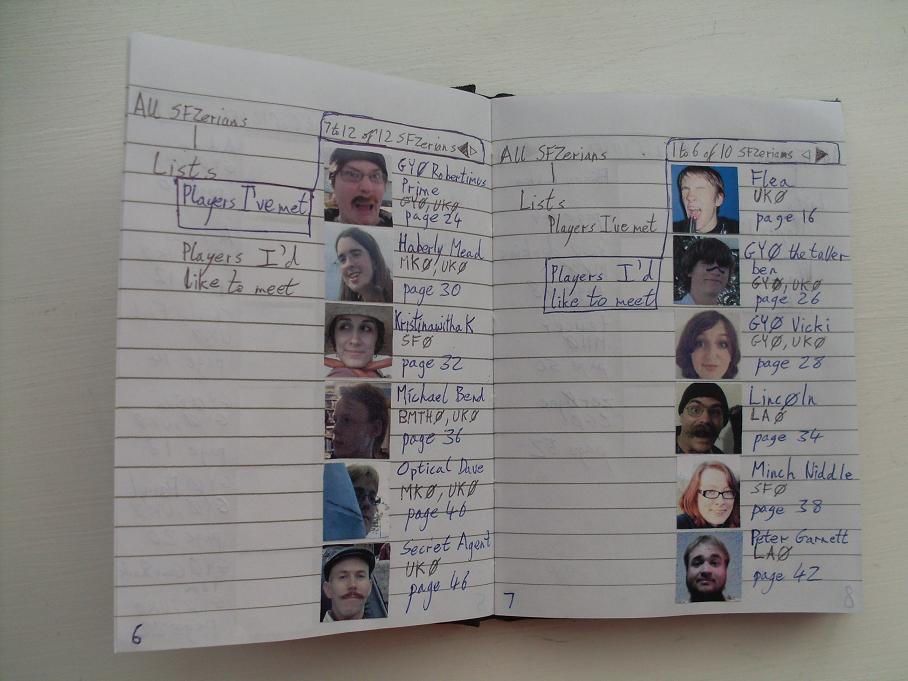 All SFZerians
Lists
Players I've met
Players I'd
like to meet
7 to 12 of 12 SFZerians
GYØ Robertimus
Prime
GYØ, UKØ
page 24
Haberly Mead
MKØ, UKØ
page 30
Kristinawitha K
SFØ
page 32
Michael Bend
BMTHØ, UKØ
page 36
Optical Dave
MKØ, UKØ
page 40
Secret Agent
UKØ
page 46
6
All SFZerians
Lists
Players I've met
Players I'd
like to meet
1 to 6 of 10 SFZerians
Flea
UKØ
page 16
GYØ the taller
ben
GYØ, UKØ
page 26
GYØ Vicki
GYØ, UKØ
page 28
Lincøln
LAØ
page 34
Minch Widdle
SFØ
page 38
Peter Garnett
LAØ
page 42
7
8